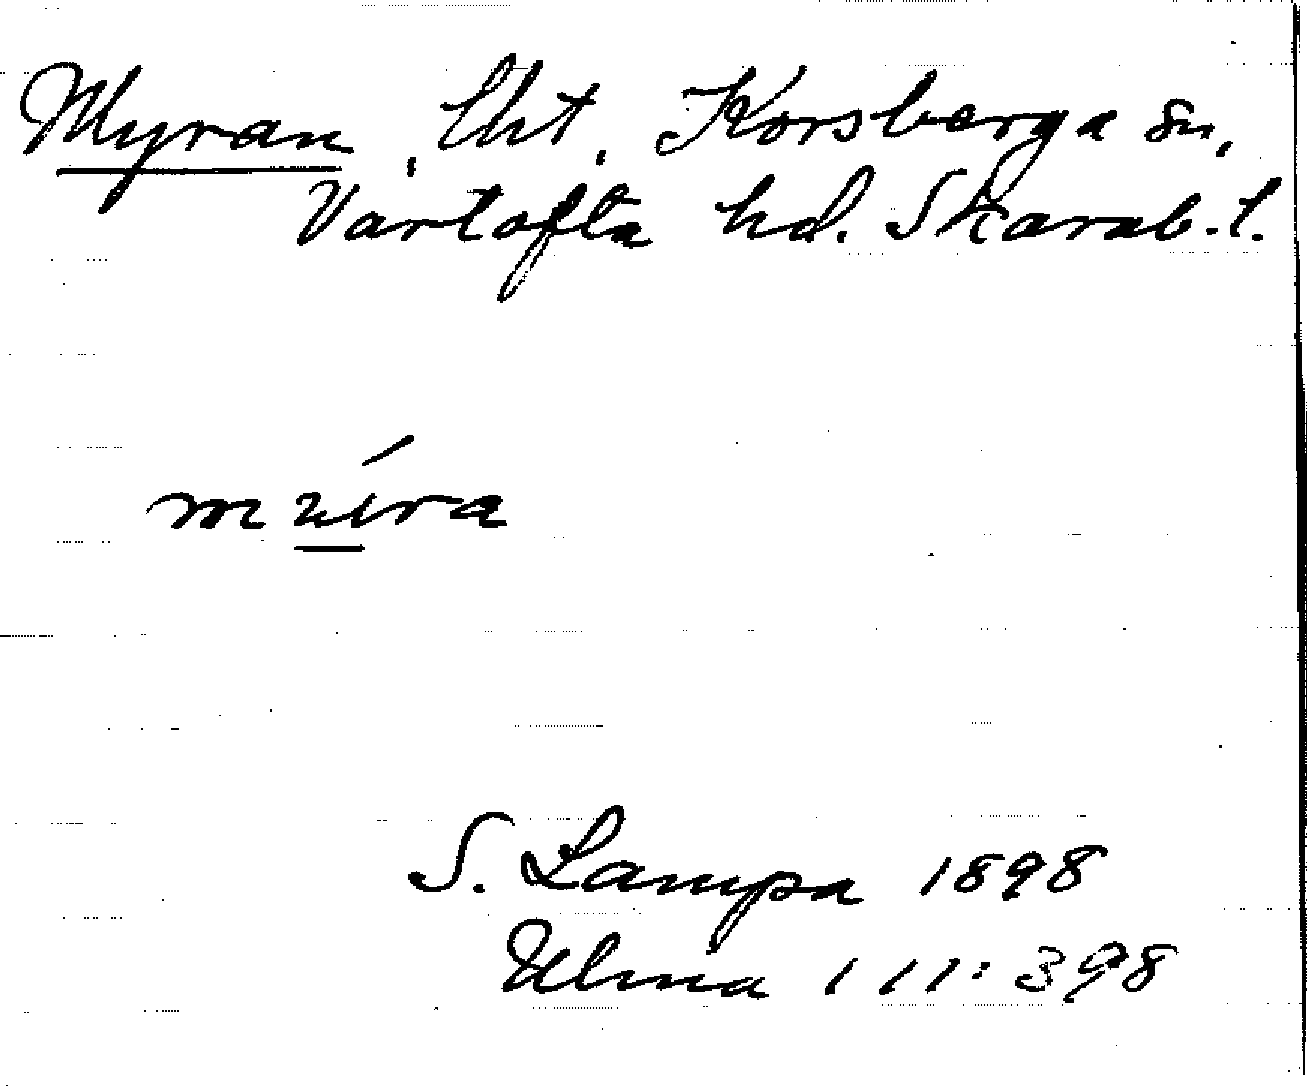 Myran, lht, Korsberga sn,
Vartofta hd. Skarab. l.
S. Lampa 1898
Ulma 111:398